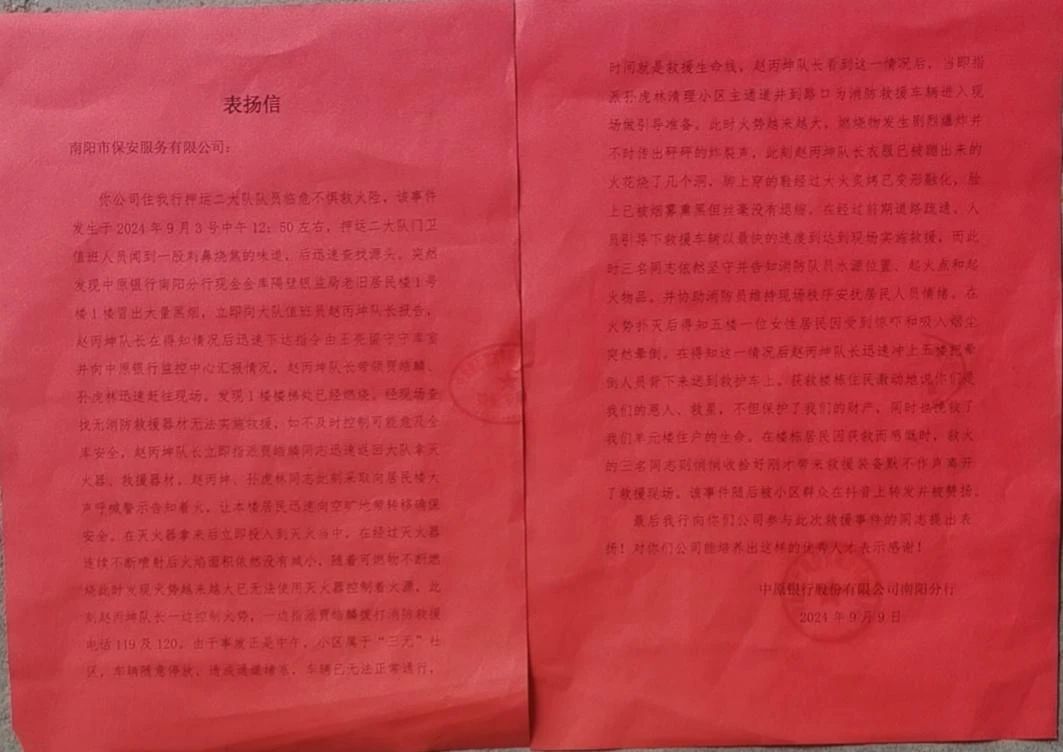 表扬信
南阳市保安服务有限公司：
你公司住我行押运二大队队员临危不惧救大险，该事件
发生于2024年9月3号中午12：50左右，押运二大队门卫
值班人员闻到一股刺鼻烧焦的味道，后迅速查找源头，突然
发现中原银行南阳分行现金金库隔壁银监局老旧居民楼1号
楼1楼冒出大量黑烟，立即向大队值班员赵丙坤队长报告，
赵丙坤队长在得知情况后迅速下达指令由王亮留守守库室
并向中原银行监控中心汇报情况，赵丙坤队长带领贾皓麟、
孙虎林迅速赶往现场，发现1楼楼梯处已经燃烧，经现场查
找无消防救援器材无法实施救援，如不及时控制可能危及金
库安全，赵丙坤队长立即指派贾皓麟同志迅速返回大队拿灭
火器、救援器材，赵丙坤、孙虎林同志此刻采取向居民楼大
声呼喊警示告知着火，让本楼居民迅速向空旷地带转移确保
安全，在灭火器拿来后立即投入到灭火当中，在经过灭火器
连续不断喷射后火焰面积依然没有减小，随着可燃物不断燃
烧此时发现火势越来越大已无法使用灭火器控制着火源，此
刻赵丙坤队长一边控制火势，一边指派贾皓麟拨打消防救援
电话119及120，由于事发正是中午，小区属于“三无”社
区，车辆随意停放、造成通道堵塞，车辆已无法正常通行，
时间就是救援生命线，赵丙坤队长看到这一情况后，当即指
派孙虎林清理小区主通道并到路口为消防救援车辆进入现
场做引导准备。此时火势越来越大，燃烧物发生剧烈爆炸并
不时传出砰砰的炸裂声，此刻赵丙坤队长衣服已被蹦出来的
火花烧了几个洞，脚上穿的鞋经过大火炙烤已变形融化，脸
上已被烟雾熏黑但丝毫没有退缩，在经过前期道路疏通、人
员引导下救援车辆以最快的速度到达现场实施救援，而此
时三名同志依然坚守并告知消防队员水源位置、起火点和起
火物品，并协助消防员维持现场秩序安抚居民人员情绪。在
火势扑灭后得知五楼一位女性居民因受到惊吓和吸入烟尘
突然晕倒，在得知这一情况后赵丙坤队长迅速冲上五楼把晕
倒人员背下来送到救护车上。获救楼栋住民激动地说你们是
我们的恩人、救星，不但保护了我们的财产，同时也挽救了
我们单元楼住户的生命。在楼栋居民因获救而感慨时，救火
的三名同志则悄悄收拾好刚才带来救援装备默不作声离开
了救援现场。该事件随后被小区群众在抖音上转发并被赞扬。
最后我行向你们公司参与此次救援事件的同志提出表
扬！对你们公司能培养出这样的优秀人才表示感谢！
中原银行股份有限公司南阳分行
2024年9月9日